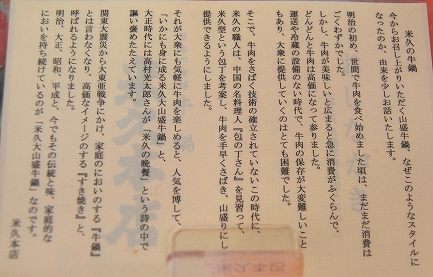 米久の牛鍋
今からお召し上がりいただく山盛牛鍋、なぜこのようなスタイルに
なったのか、由来を少しお話いたします。
明治の初め、世間で牛肉を食べ始めました頃は、まだまだ消費は
ごくわずかでした。
しかし、牛肉が美味しいと広まると急に消費がふくらんで、
どんどんと牛肉は高価になって参りました。
運送や冷蔵の設備のない時代で、牛肉の保存が大変難しいこと
もあり、大衆に提供していくのはとても困難でした。
そこで、牛肉をさばく技術の確立されていないこの時代に、
米久の職人は、中国の名料理人『包の丁さん』を見習って、
米久型という包丁を考案し、牛肉を手早くさばき、山盛りにし
提供できるようにしました。
それが大衆にも気軽に牛肉を楽しめると、人気を博して、
「いかにも身に成る米久大山盛牛鍋」と、
大正時代には高村光太郎さんが「米久の晩餐」という詩の中で
謳い褒めたたえています。
関東大震災から大東亜戦争にかけ、家庭のにおいのする『牛鍋』
とは言わなくなり、高価なイメージのする『すき焼き』と、
呼ばれるようになりました。
明治、大正、昭和、平成と、今でもその伝統と味、家庭的な
においを持ち続けているのが「米久大山盛牛鍋」なのです。
米久本店